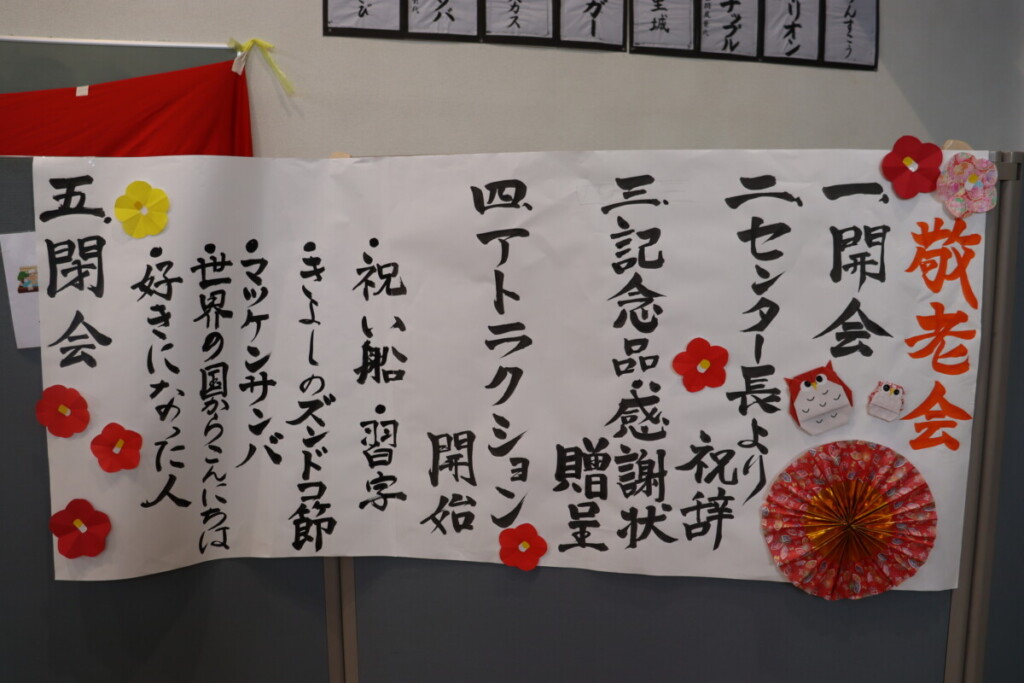 敬老会
一、開会
二、センター長より
祝辞
三、記念品・感謝状
贈呈
四、アトラクション
開始
・祝い船 ・習字
・きよしのズンドコ節
・マツケンサンバ
・世界の国からこんにちは
・好きになった人
五、閉会